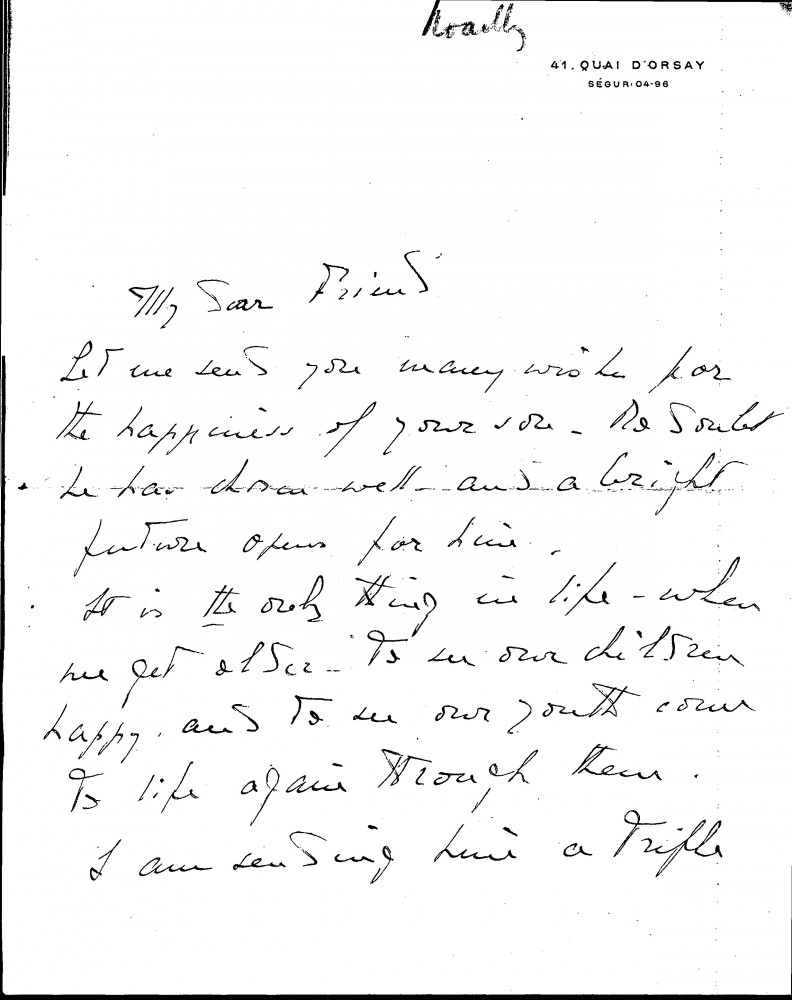 Noailly
41. QUAI D'ORSAY
SÉGUR·04-96
My Dear Friend
Let me send you many wishes for
the happiness of your son - No Doubt
he has chosen well - and a bright
future opens for him.
It is the only thing in life - when
we get older - To see our children
happy. and To see our youth come
To life again Through them.
I am sending him a Trifle